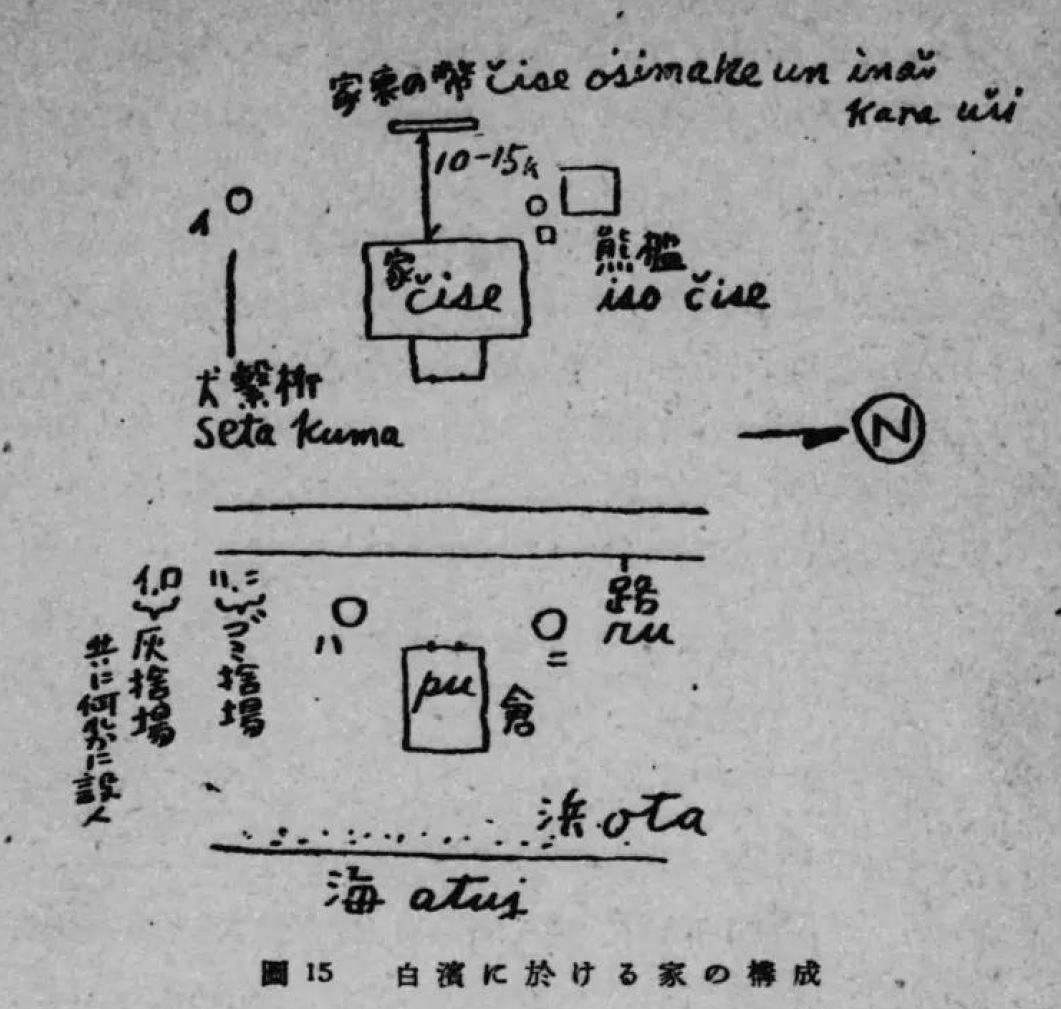 家裏の幣 čise ośimake un inaŭ
kara uši
10-15k
イ
家
čise
熊檻
iso čise
犬繋桁
seta kuma
N
路
ru
イ.ロ
灰捨場
ハ.ニ
ゴミ捨場
共に何れかに設
ハ
ニ
pu
倉
浜 ota
海 atuj
圖 15 白濱に於ける家の構成